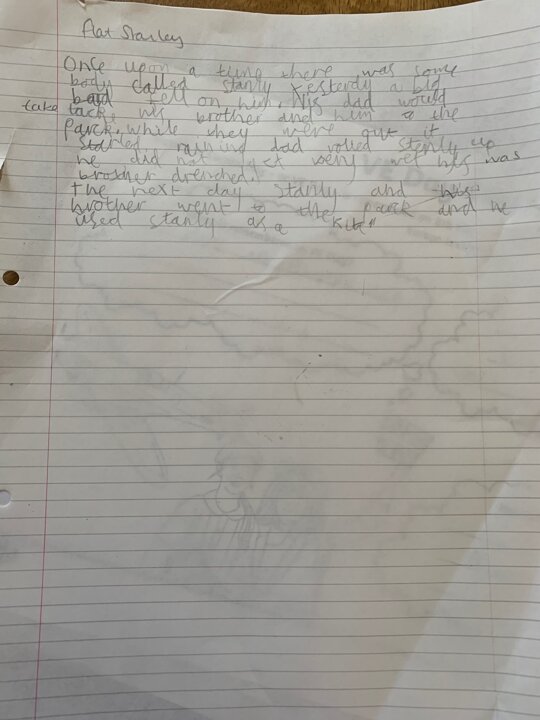 Flat Stanley
Once upon a time there was some
body called Stanly Yesterdy a big
bord fell on him. his dad would
take tack, his brother and him to the
Parck. while they were out it
started raining dad rolled Stenly up
he did not get very wet his was
brother drenched.
the next day Stanly and his
brother went to the parck and he
used stanly as a Kite"